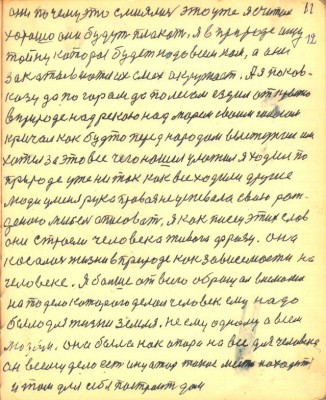 они почему это смеялись это уже я считал 11
хорошо они будут плакать, я в природе ищу 12
тайну которая будет надо всем ими, а они
за на их смех окружает. А я по Кав-
казу да по горам да по полям ездил
в природе над рекою над морем своим голосом
кричал как будто перед народом выступал им
хотел за это все чего нашел уложил я ходил по
природе уже не так как все ходили другие
люди у меня рука правая не успевала свою рож-
денную мысль описовать, я как писец этих слов
они строят человека живого фразу. она
косалась жизни в природе как зависемости на
человеке. Я больше от всего обращал внимание
на то дело которого делал человек ему надо
было для жизни земля. не ему одному а всем
людям. она была как опора на все для человека
он всему дело есть такие места находит
и там для себя построит дом